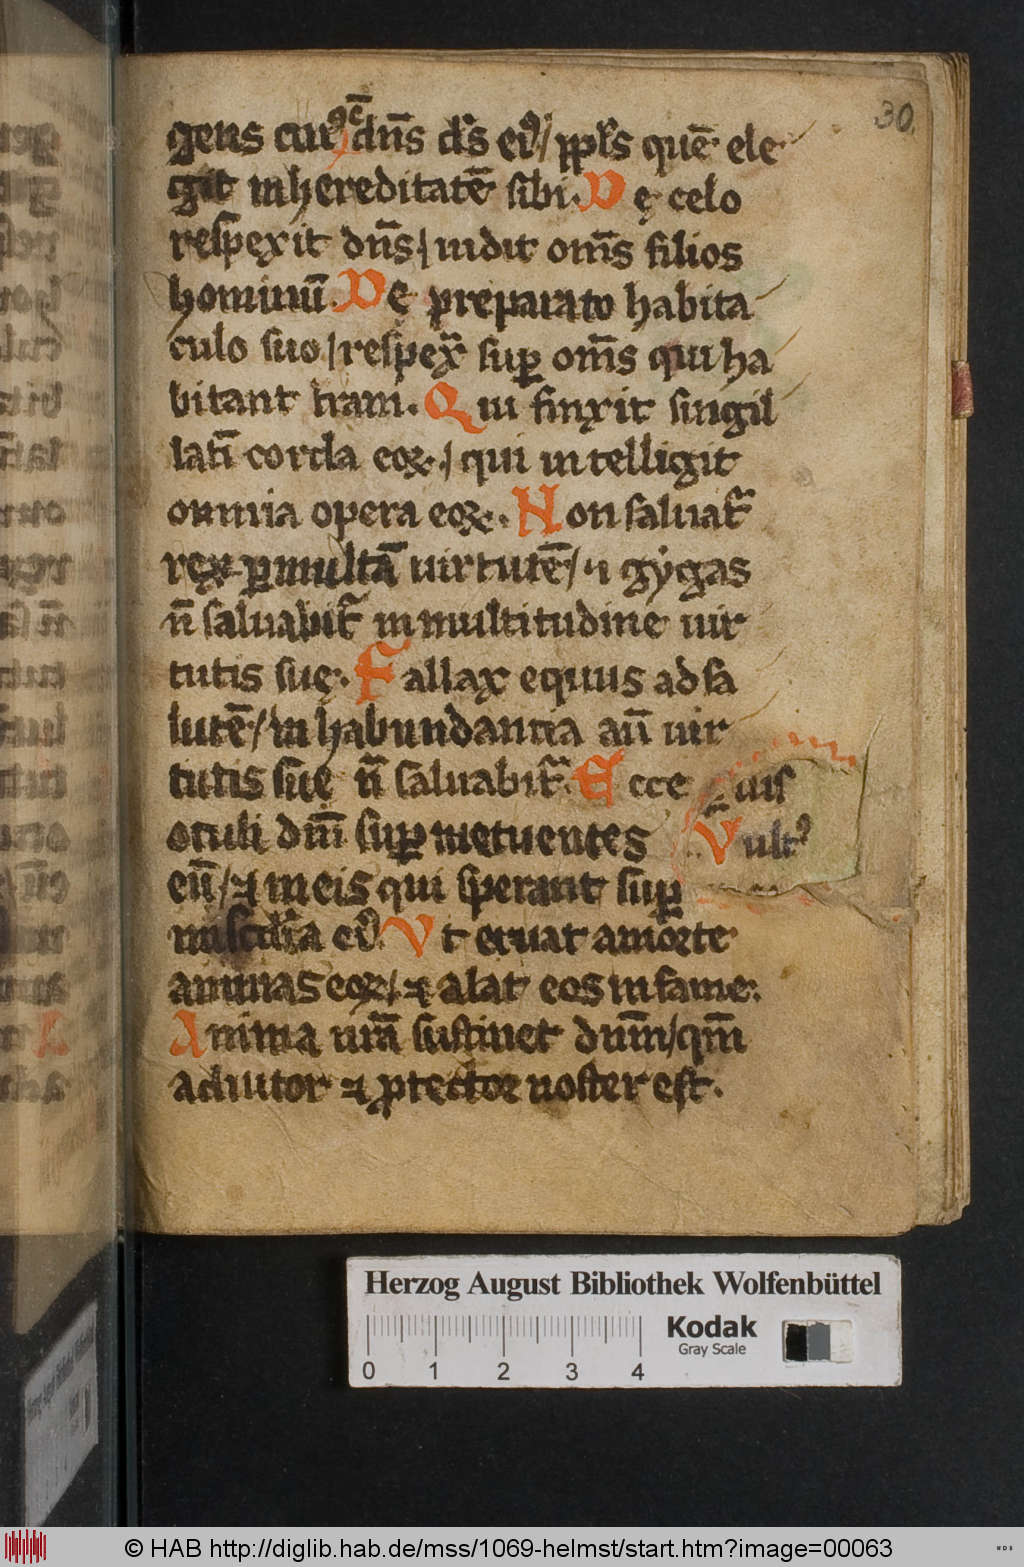 30.
gens cui⁹ ē dn̄s ds̄ ei⁹ / ppl̄s quē ele
git in hereditatē sibi. Dę celo
respęxit dn̄s / uidit om̄s filios
hominū. Dę preparato habita
culo suo / respex̄ sup̱ om̄s qui ha
bitant tr̄am. Qui finxit singil
latī corda eoꝝ. / qui intelligit
omnia opera eoꝝ. Non saluat᷑
rex ꝑ multā uirtutē / ⁊ gẏgas
n̄ saluabit᷑ in multitudine uir
tutis suę. Fallax equus ad sa
lutē / in habundantia aū uir
tutis suę n̄ saluabit᷑. Ecce
oculi dn̄i sup̱ metuentes
eū / ⁊ in eis qui sperant sup̱
mis̄cdia ei⁹. Vt eruat a morte
animas eoꝝ / ⁊ alat eos in fame.
Anima nr̄a sustinet dn̄m / qm̄
adiutor ⁊ ꝓtector noster est.
uis
Vult⁹
Herzog August Bibliothek Wolfenbüttel
0 1 2 3 4
Kodak
Gray Scale
© HAB http://diglib.hab.de/mss/1069-helmst/start.htm?image=00063